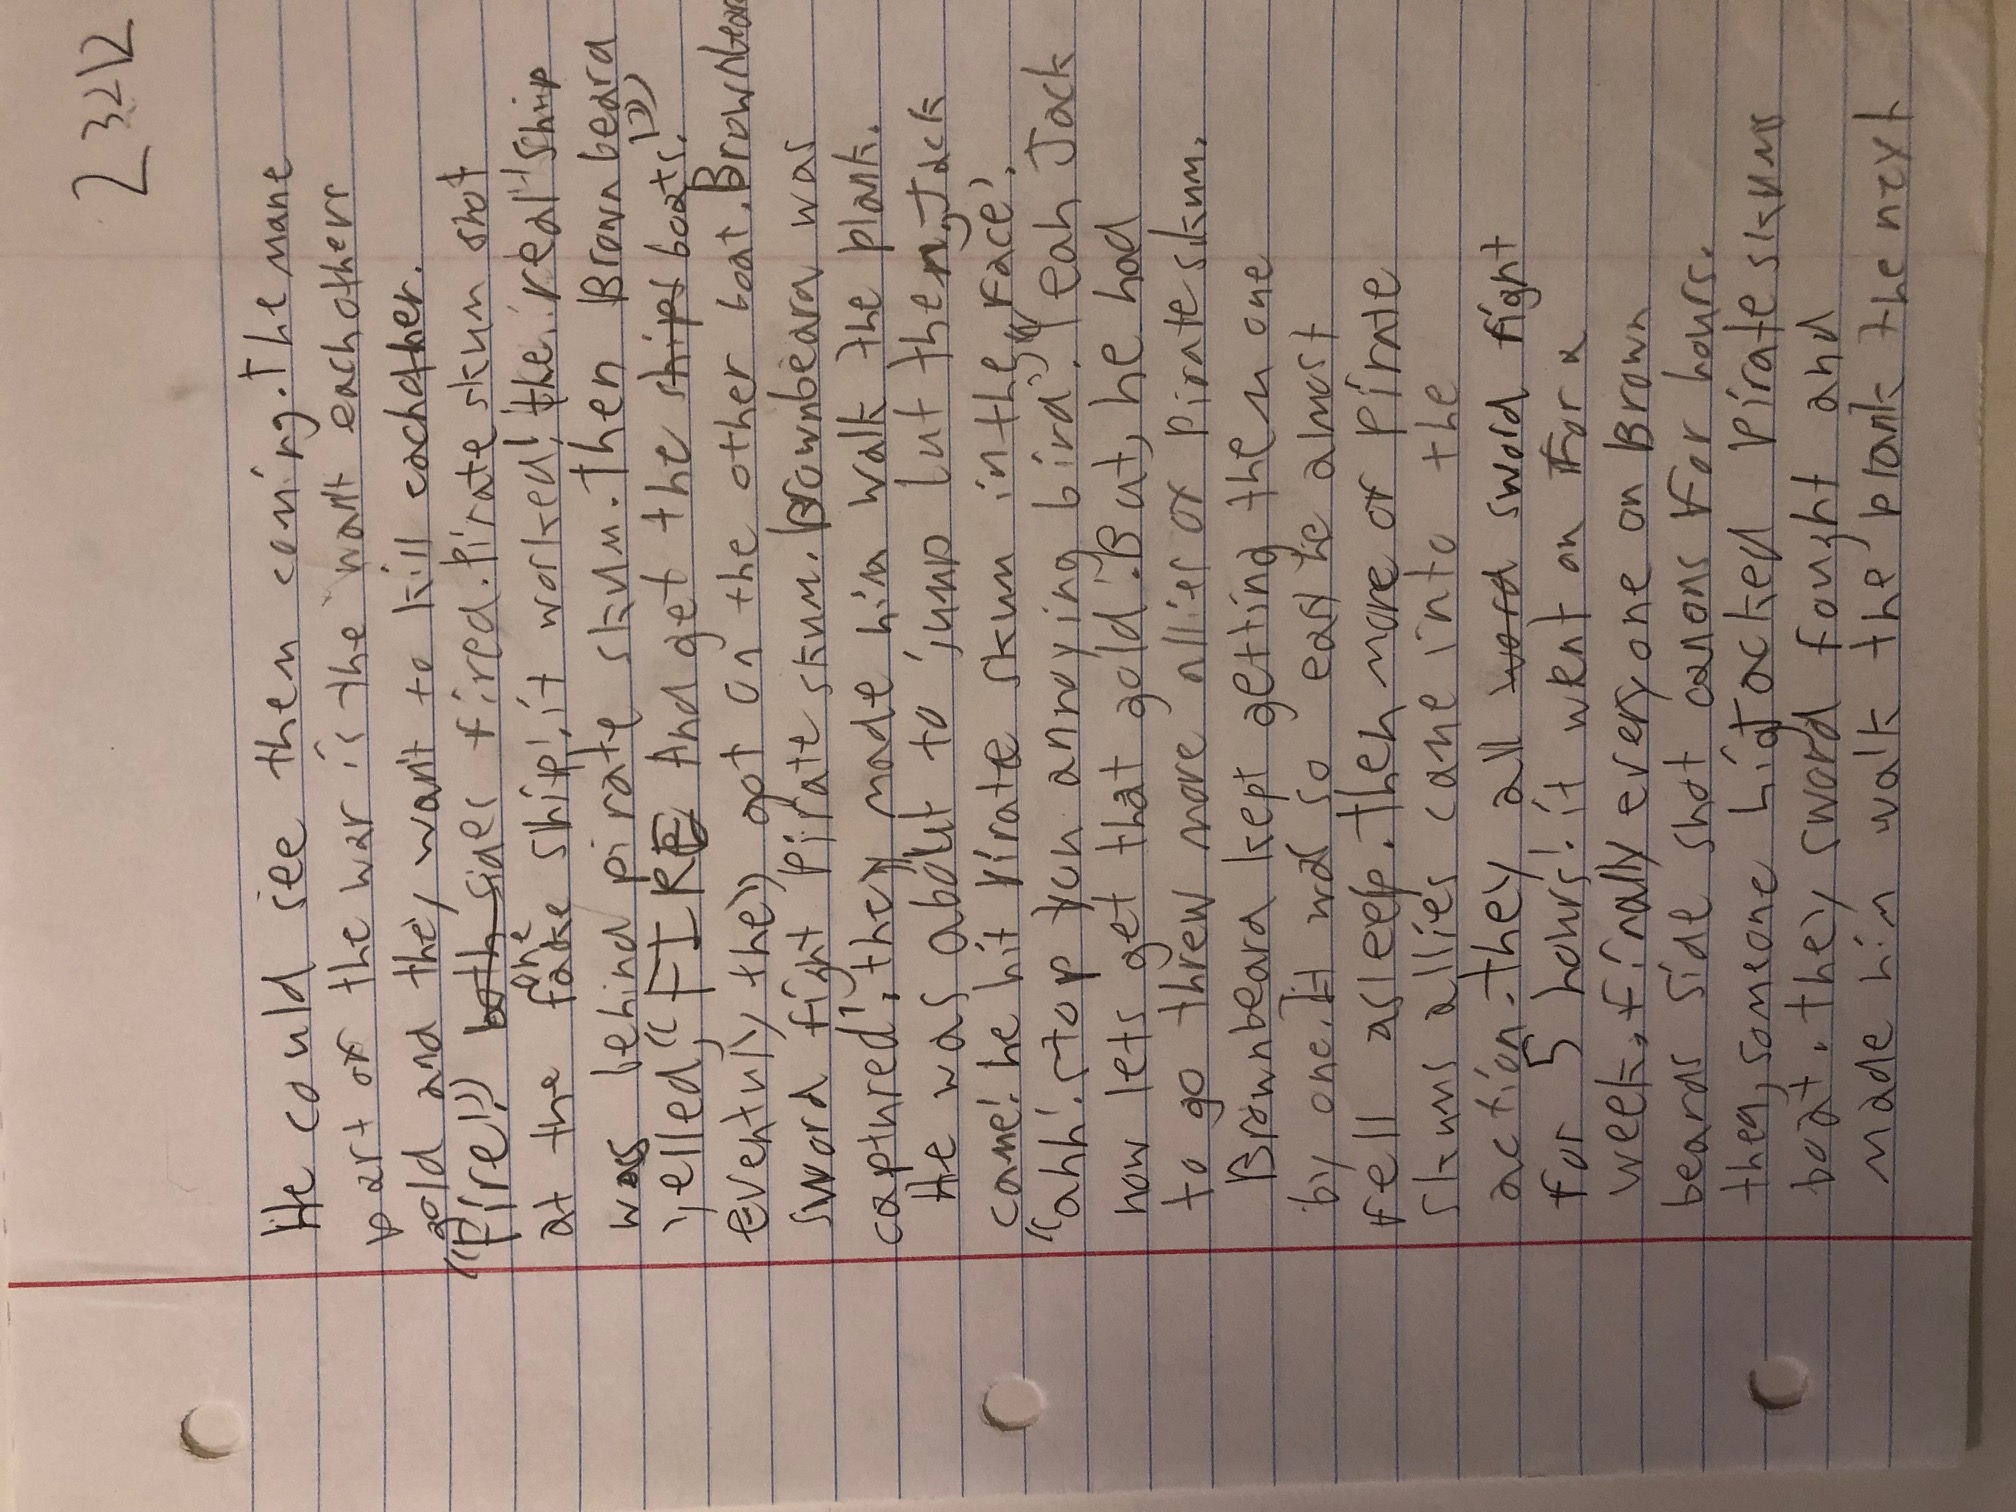 23212
He could see them coming. The mane
part of the war is the want eachothers
gold and they want to kill eachother.
"Fire!" both sides fired. Pirate skum shot
at the fake one ship! it worked! the real ship
was behind pirate skum. Then Brownbeard
yelled, "FIRE And get the ships boats!"
eventuly they got on the other boat. Brownbeard
sword fight Pirate skum. Brownbeard was
captured! they made him walk the plank.
He was about to jump but then, Jack
came! he hit Pirate skum in the face!
"ahh! stop you annoying bird" "Yeah Jack
now lets get that gold. But, he had
to go threw more allies of Pirate skum.
Brownbeard kept getting them one
by one. It was so easy he almost
fell asleep. Then more of Pirate
skums allies came into the
action. they all word sword fight
for 5 hours! it went on for a
week, finally everyone on Brown
beards side shot canons For hours.
then, someone higJacked Pirate skums
boat. they sword fought and
made him walk the plank the next